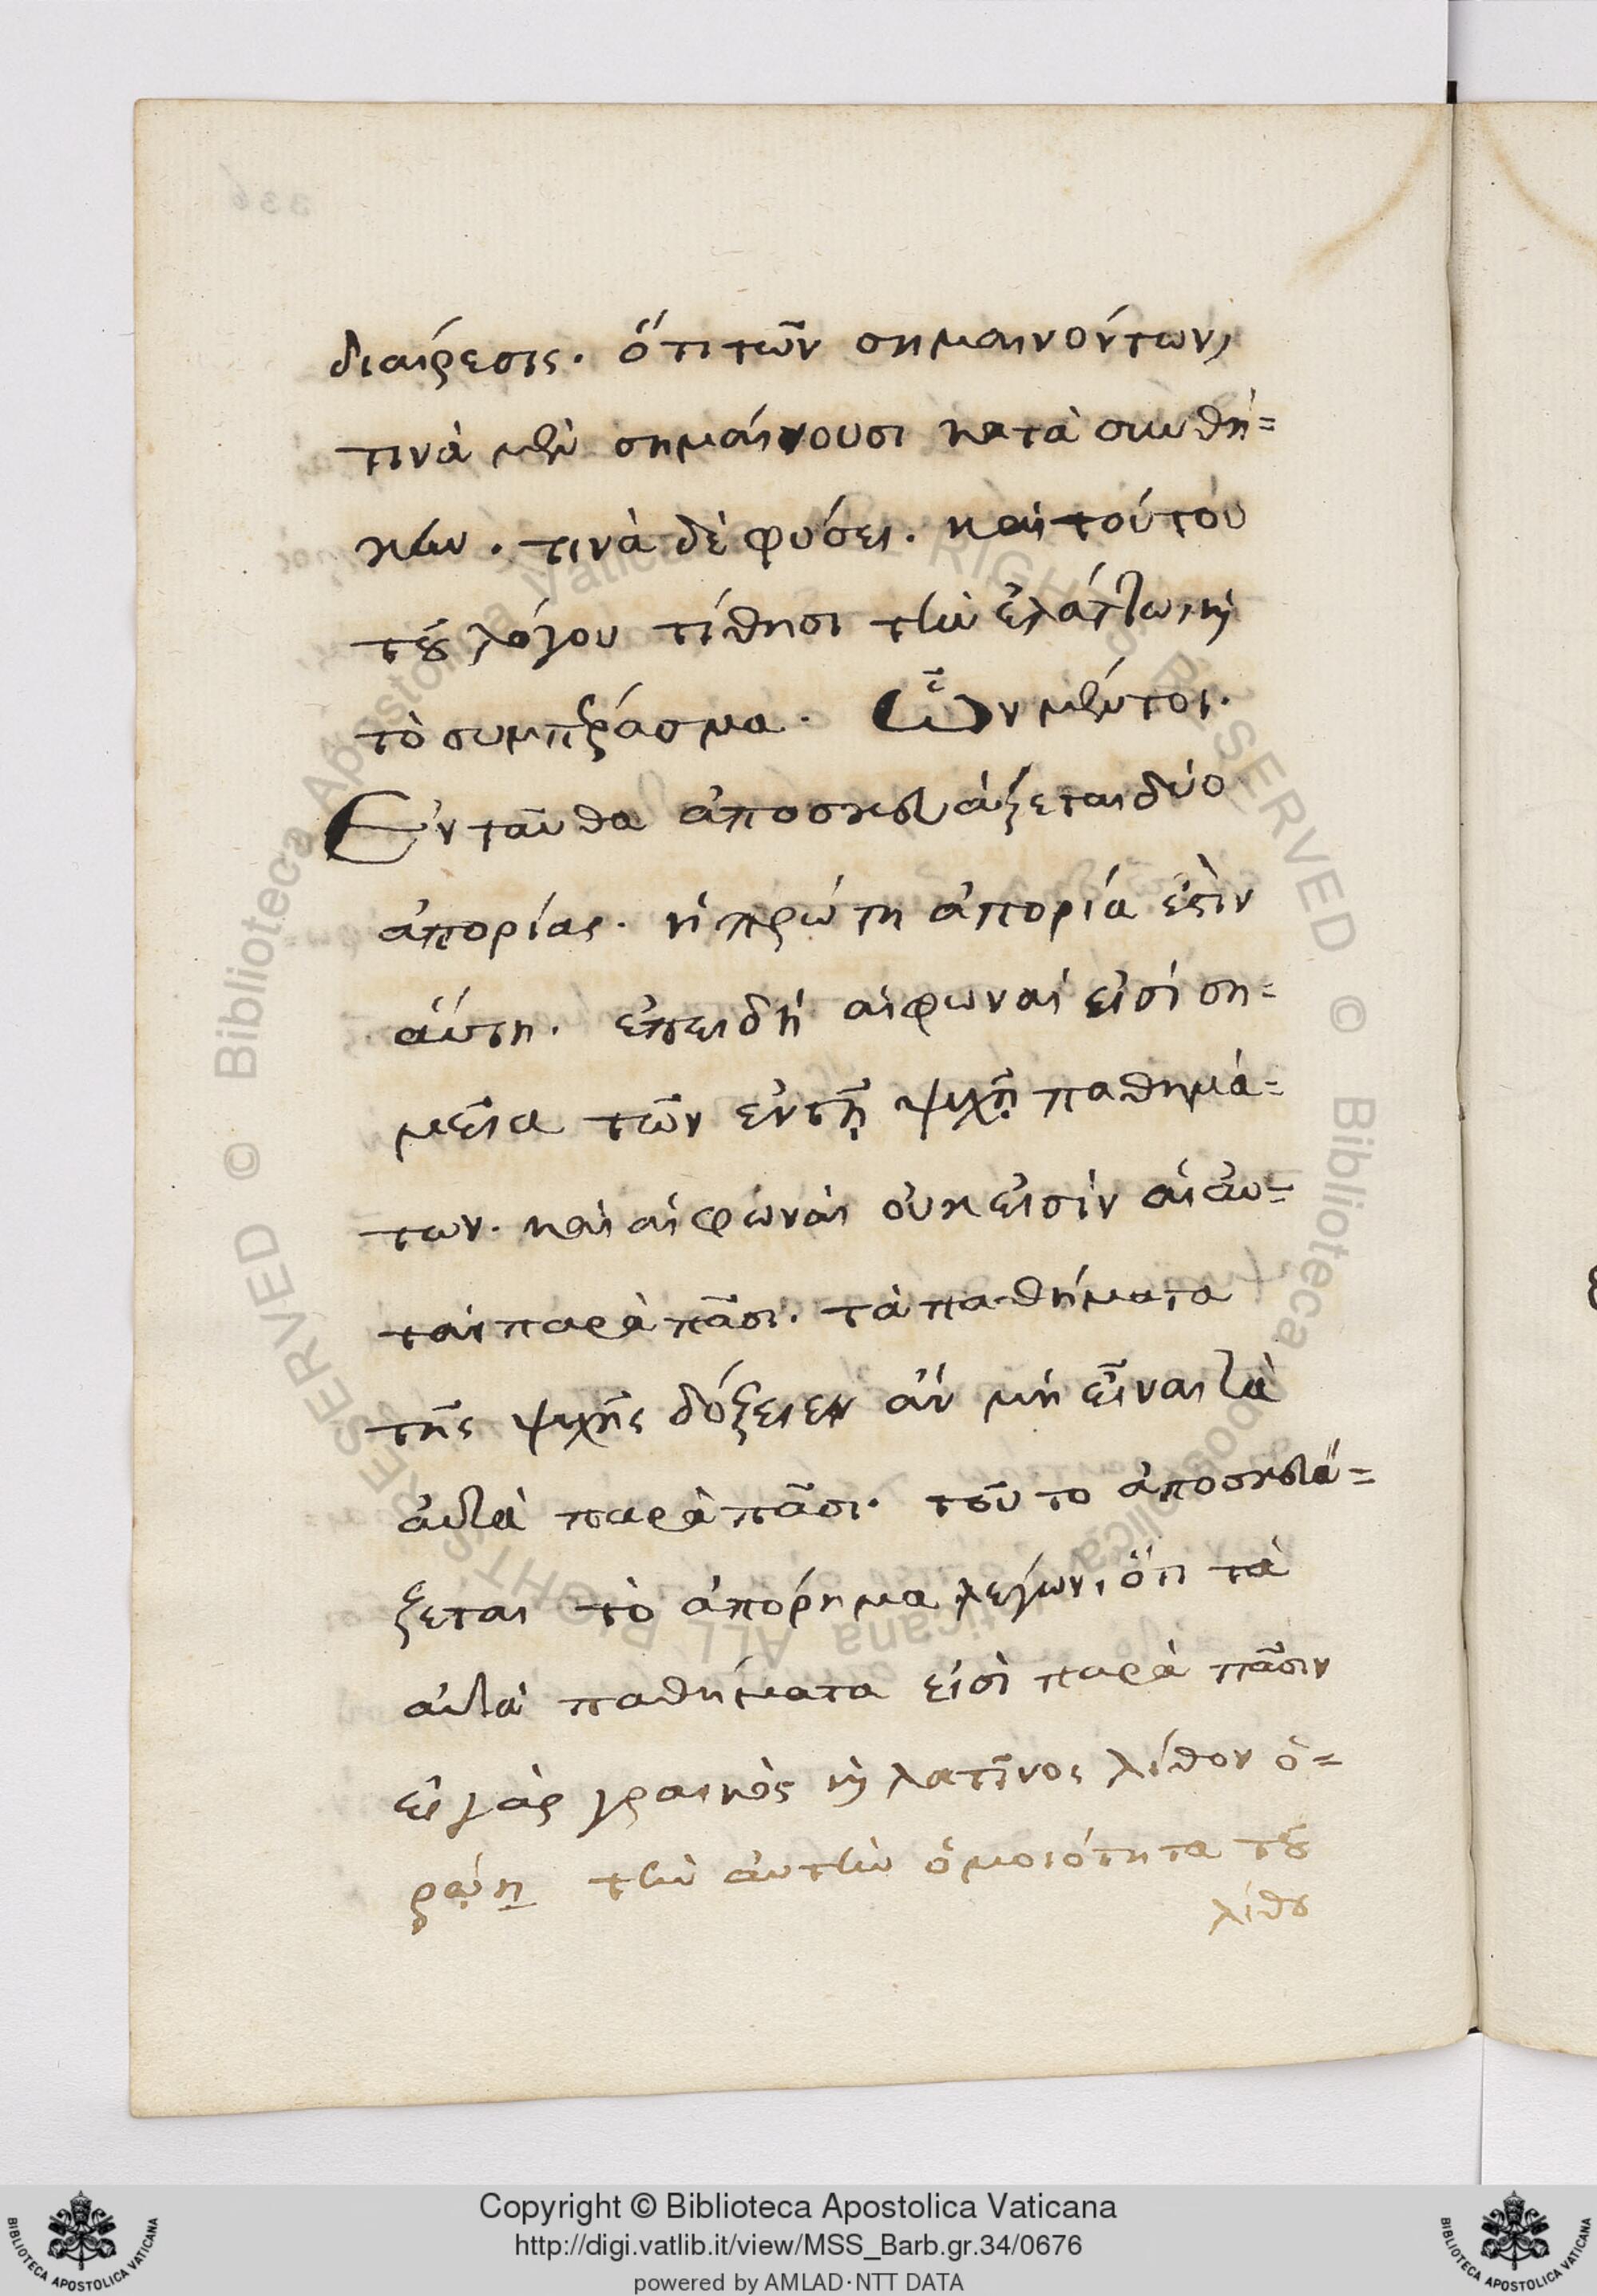 διαίρεσις. ὅτι τῶν σημαινόντων,
τινὰ μὲν σημαίνουσι κατὰ συνθή=
κην. τινὰ δὲ φύσει. καὶ τούτου
τοῦ λόγου τίθησι τὴν ἐλάττω, καὶ
τὸ συμπέρασμα. Ὧν μέντοι.
Ἐνταῦθα ἀποσκευάζεται δύο
ἀπορίας. ἡ πρώτη ἀπορία ἐστὶν
αὕτη. ἐπειδὴ αἱ φωναί εἰσι ση=
μεῖα τῶν ἐν τῇ ψυχῇ παθημά=
των. καὶ αἱ φωναὶ οὐκ εἰσὶν αἱ αὐ=
ταὶ παρὰ πᾶσι. τὰ παθήματα
τῆς ψυχῆς δόξειεν ἂν μὴ εἶναι τὰ
αὐτὰ παρὰ πᾶσι. τοῦτο ἀποσκευά=
ζεται τὸ ἀπόρημα λέγων, ὅτι τὰ
αὐτὰ παθήματα εἰσὶ παρὰ πᾶσιν
εἰ γὰρ γραικὸς καὶ λατῖνος λίθον ὁ=
ρῴη τὴν αὐτὴν ὁμοιότητα τοῦ
λίθου
Copyright © Biblioteca Apostolica Vaticana
http://digi.vatlib.it/view/MSS_Barb.gr.34/0676
powered by AMLAD·NTT DATA
BIBLIOTECA APOSTOLICA VATICANA
BIBLIOTECA APOSTOLICA VATICANA
© Biblioteca Apostolica Vaticana ALL RIGHTS RESERVED
© Biblioteca Apostolica Vaticana ALL RIGHTS RESERVED